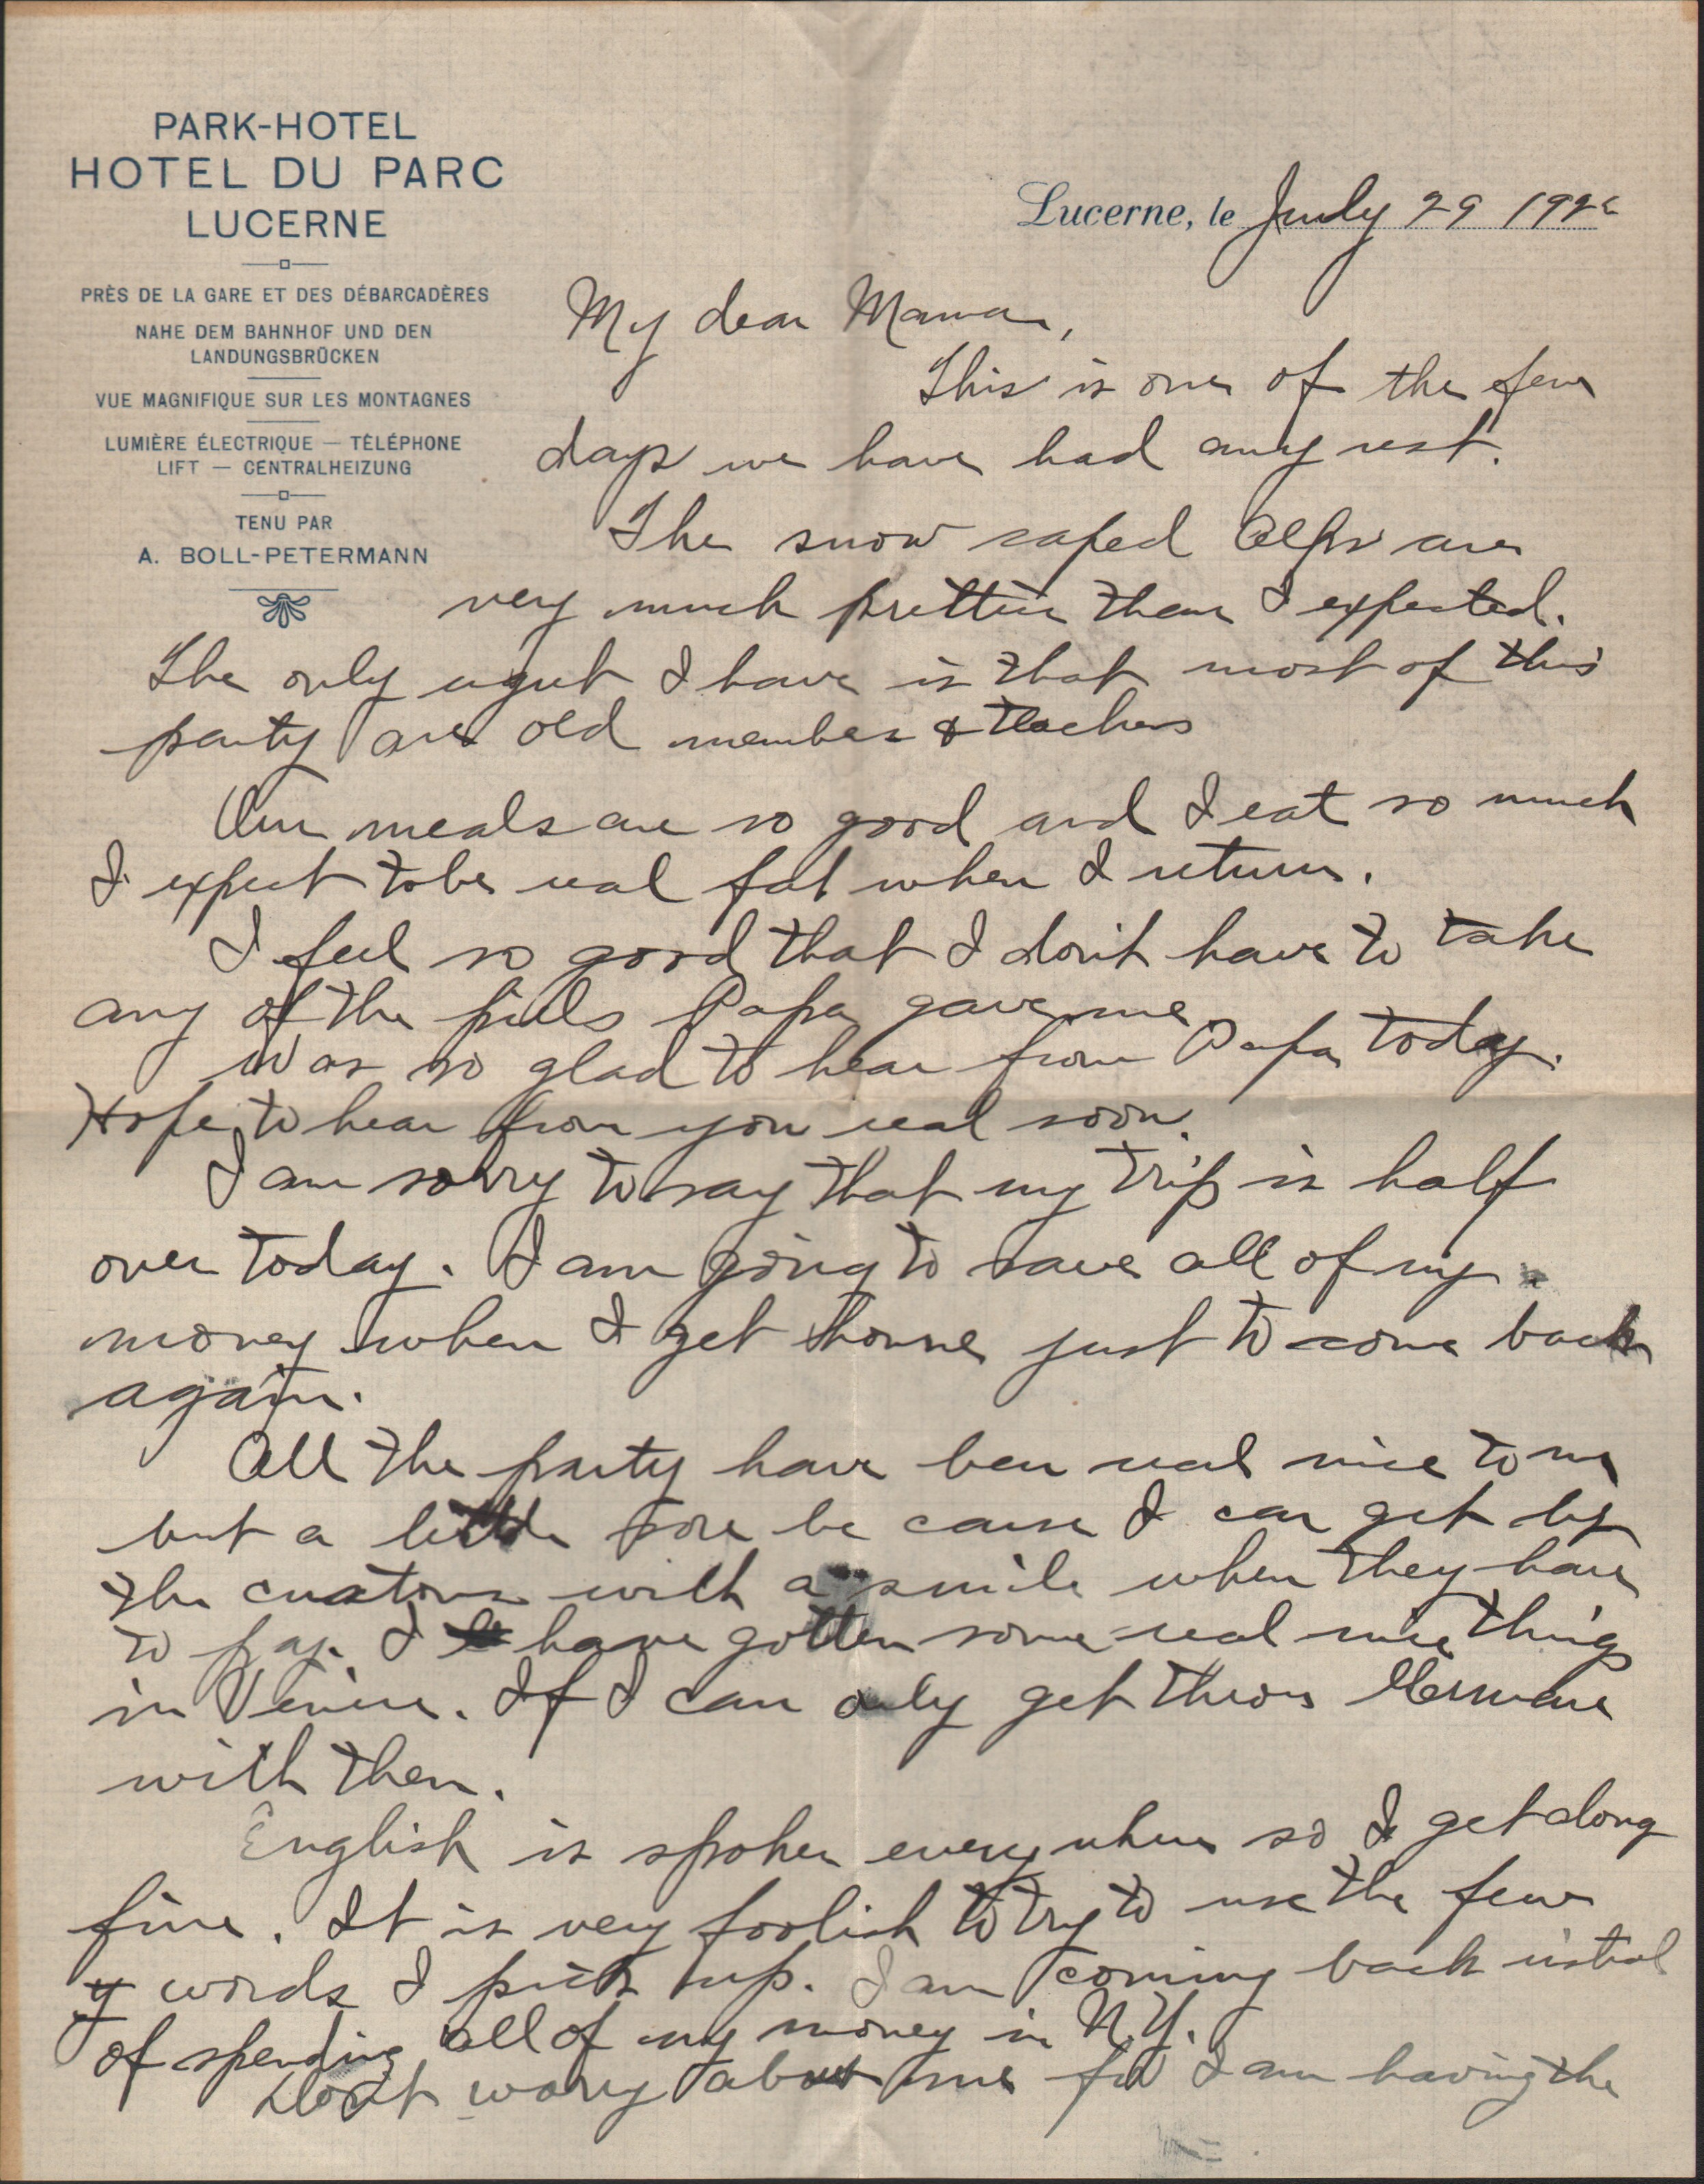 PARK-HOTEL
HOTEL DU PARC
LUCERNE
PRÈS DE LA GARE ET DES DÉBARCADÈRES
NAHE DEM BAHNHOF UND DEN
LANDUNGSBRÜCKEN
VUE MAGNIFIQUE SUR LES MONTAGNES
LUMIÈRE ÉLECTRIQUE — TÉLÉPHONE
LIFT — CENTRALHEIZUNG
TENU PAR
A. BOLL-PETERMANN
Lucerne, le July 29
My dear Mama,
This is one of the few
days we have had any rest.
The snow caped Alps are
very much prettier than I expected.
The only regret I have is that most of this
party are old member & teachers
Our meals are so good and I eat so much
I expect to be real fat when I return.
I feel so good that I don't have to take
any of the pills Papa gave me.
Was so glad to hear from Papa today.
Hope to hear from you real soon.
I am sorry to say that my trip is half
over today. I am going to save all of my
money when I get home just to come back
again.
All the party have been real nice to me
but a little sore be cause I can get by
the customs with a smile when they have
to pay. I have gotten some real nice things
in Venice. If I can only get throu Germane
with them.
English is spoken everywhere so I get along
fine. It is very foolish to try to use the few
words I pick up. I am coming back instead
of spending all of my money in N.Y.
Don't worry about me for I am having the